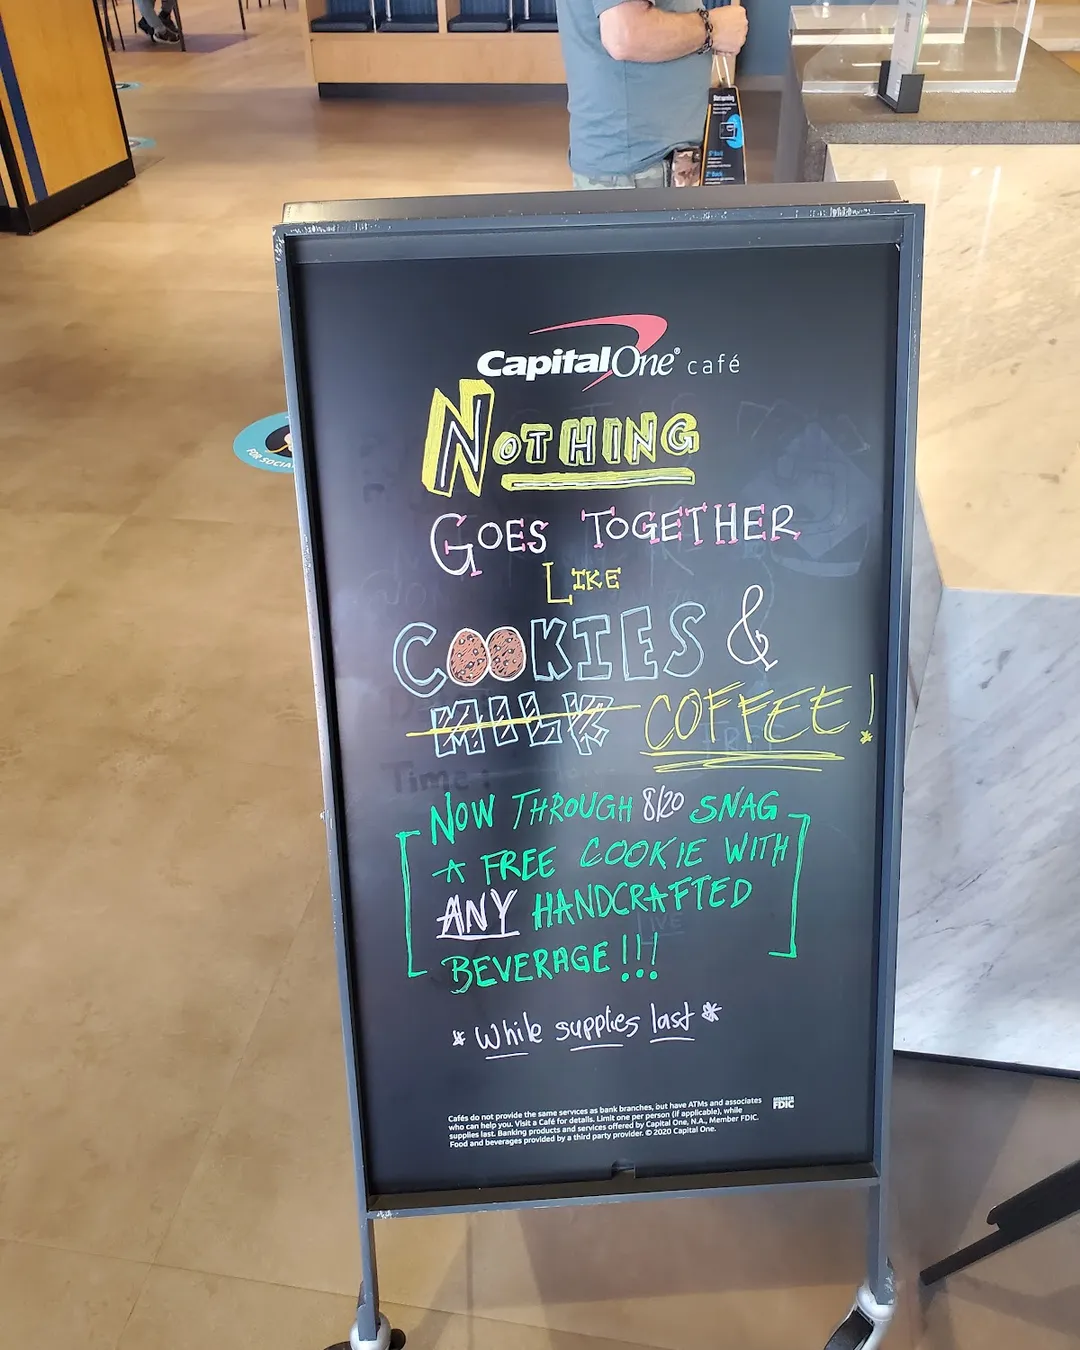 CapitalOne® café
NOTHING
GOES TOGETHER
LIKE
COOKIES &
MILK COFFEE!
NOW THROUGH 8/20 SNAG
A FREE COOKIE WITH
ANY HANDCRAFTED
BEVERAGE!!!
*While supplies last*
Cafés do not provide the same services as bank branches, but have ATMs and associates
who can help you. Visit a Café for details. Limit one per person (if applicable), while
supplies last. Banking products and services offered by Capital One, N.A., Member FDIC.
Food and beverages provided by a third party provider. © 2020 Capital One.
MEMBER
FDIC
FOR SOCIA